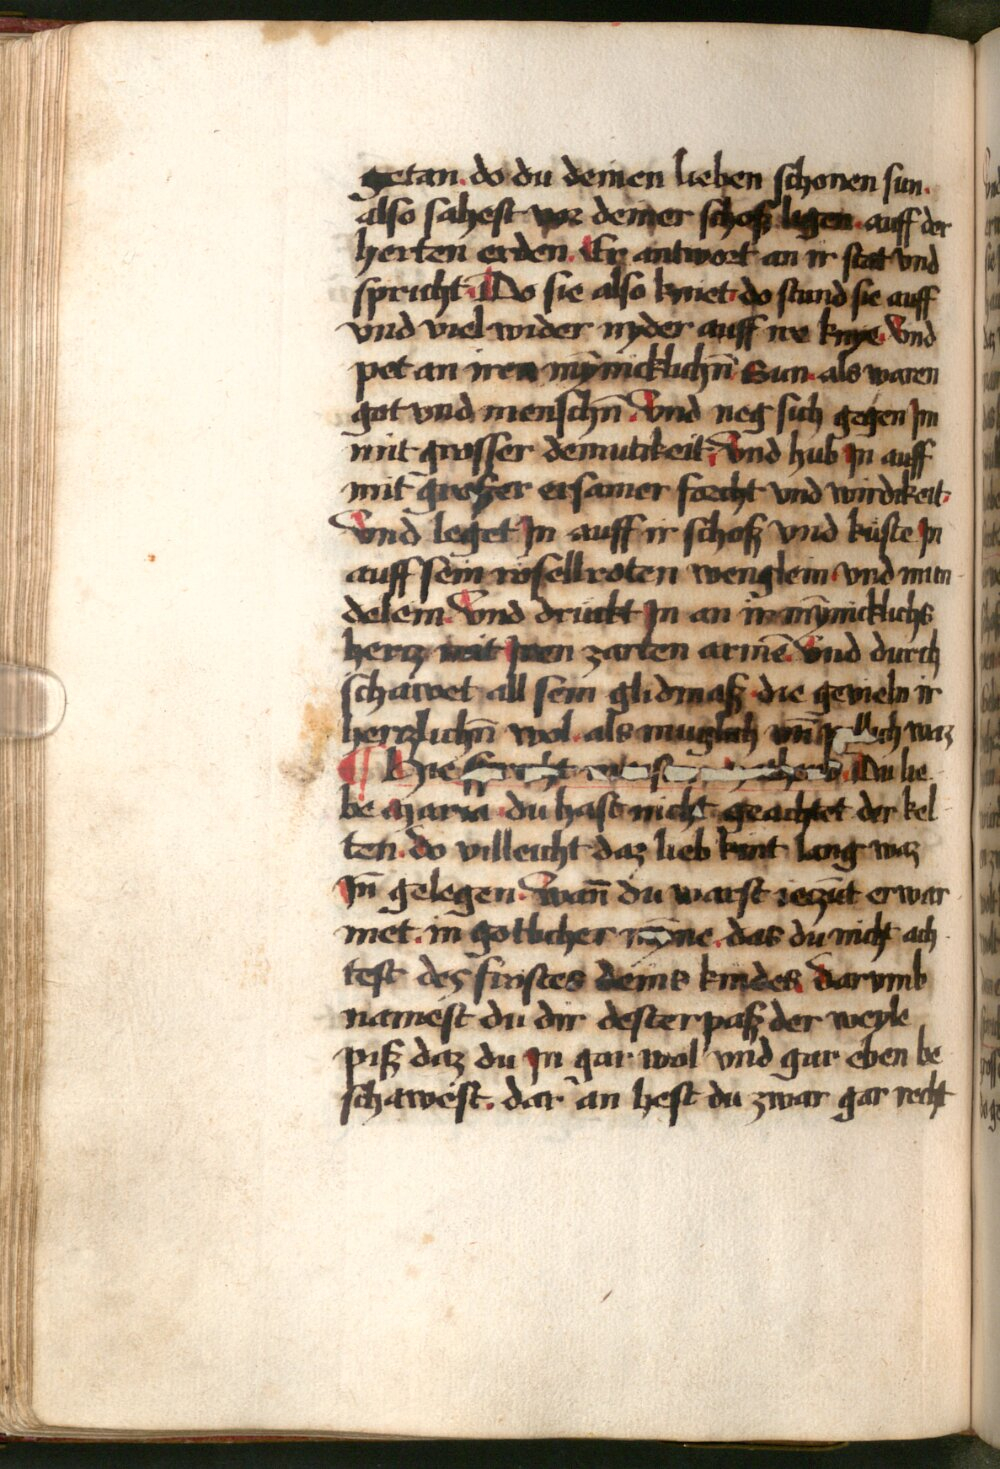 getan. do du deinen lieben schonen sun.
also sahest vor deiner schoß ligen. auff der
herten erden. Er antwort an ir stat vnd
spricht. Do sie also kniet. do stund sie auff
vnd viel wider nyder auff ire knye. Vnd
pet an iren mȳnicklichn̄ Sun. als waren
got vnd menschn̄. Vnd neg sich gegen Im
mit grosser demutikeit. Vnd hub In auff
mit großer ersamer forcht vnd wirdikeit.
Vnd leget In auff ir schoß vnd küste In
auff sein rosellroten wenglein vnd mun
delein. Vnd druckt In an ir mȳnicklichs
hercz mit Iren zarten armē. Vnd durch
schawet all sein glidmaß die gevieln ir
herczlichn̄ wol. als muglich waz
¶ Hie Du lie
be maria du hast nicht geachtet der kel
ten. do villeicht daz lieb kint lang waz
In̄ gelegen. Wan̄ du warst ieczūt erwar
met. in gotlicher mȳne. das du nicht ach
test dez frostes deins kindes. Darvmb
namest du dir desterpaß der weyle
piß daz du In gar wol vnd gar eben be
schawest. dar an hest du zwar gar recht